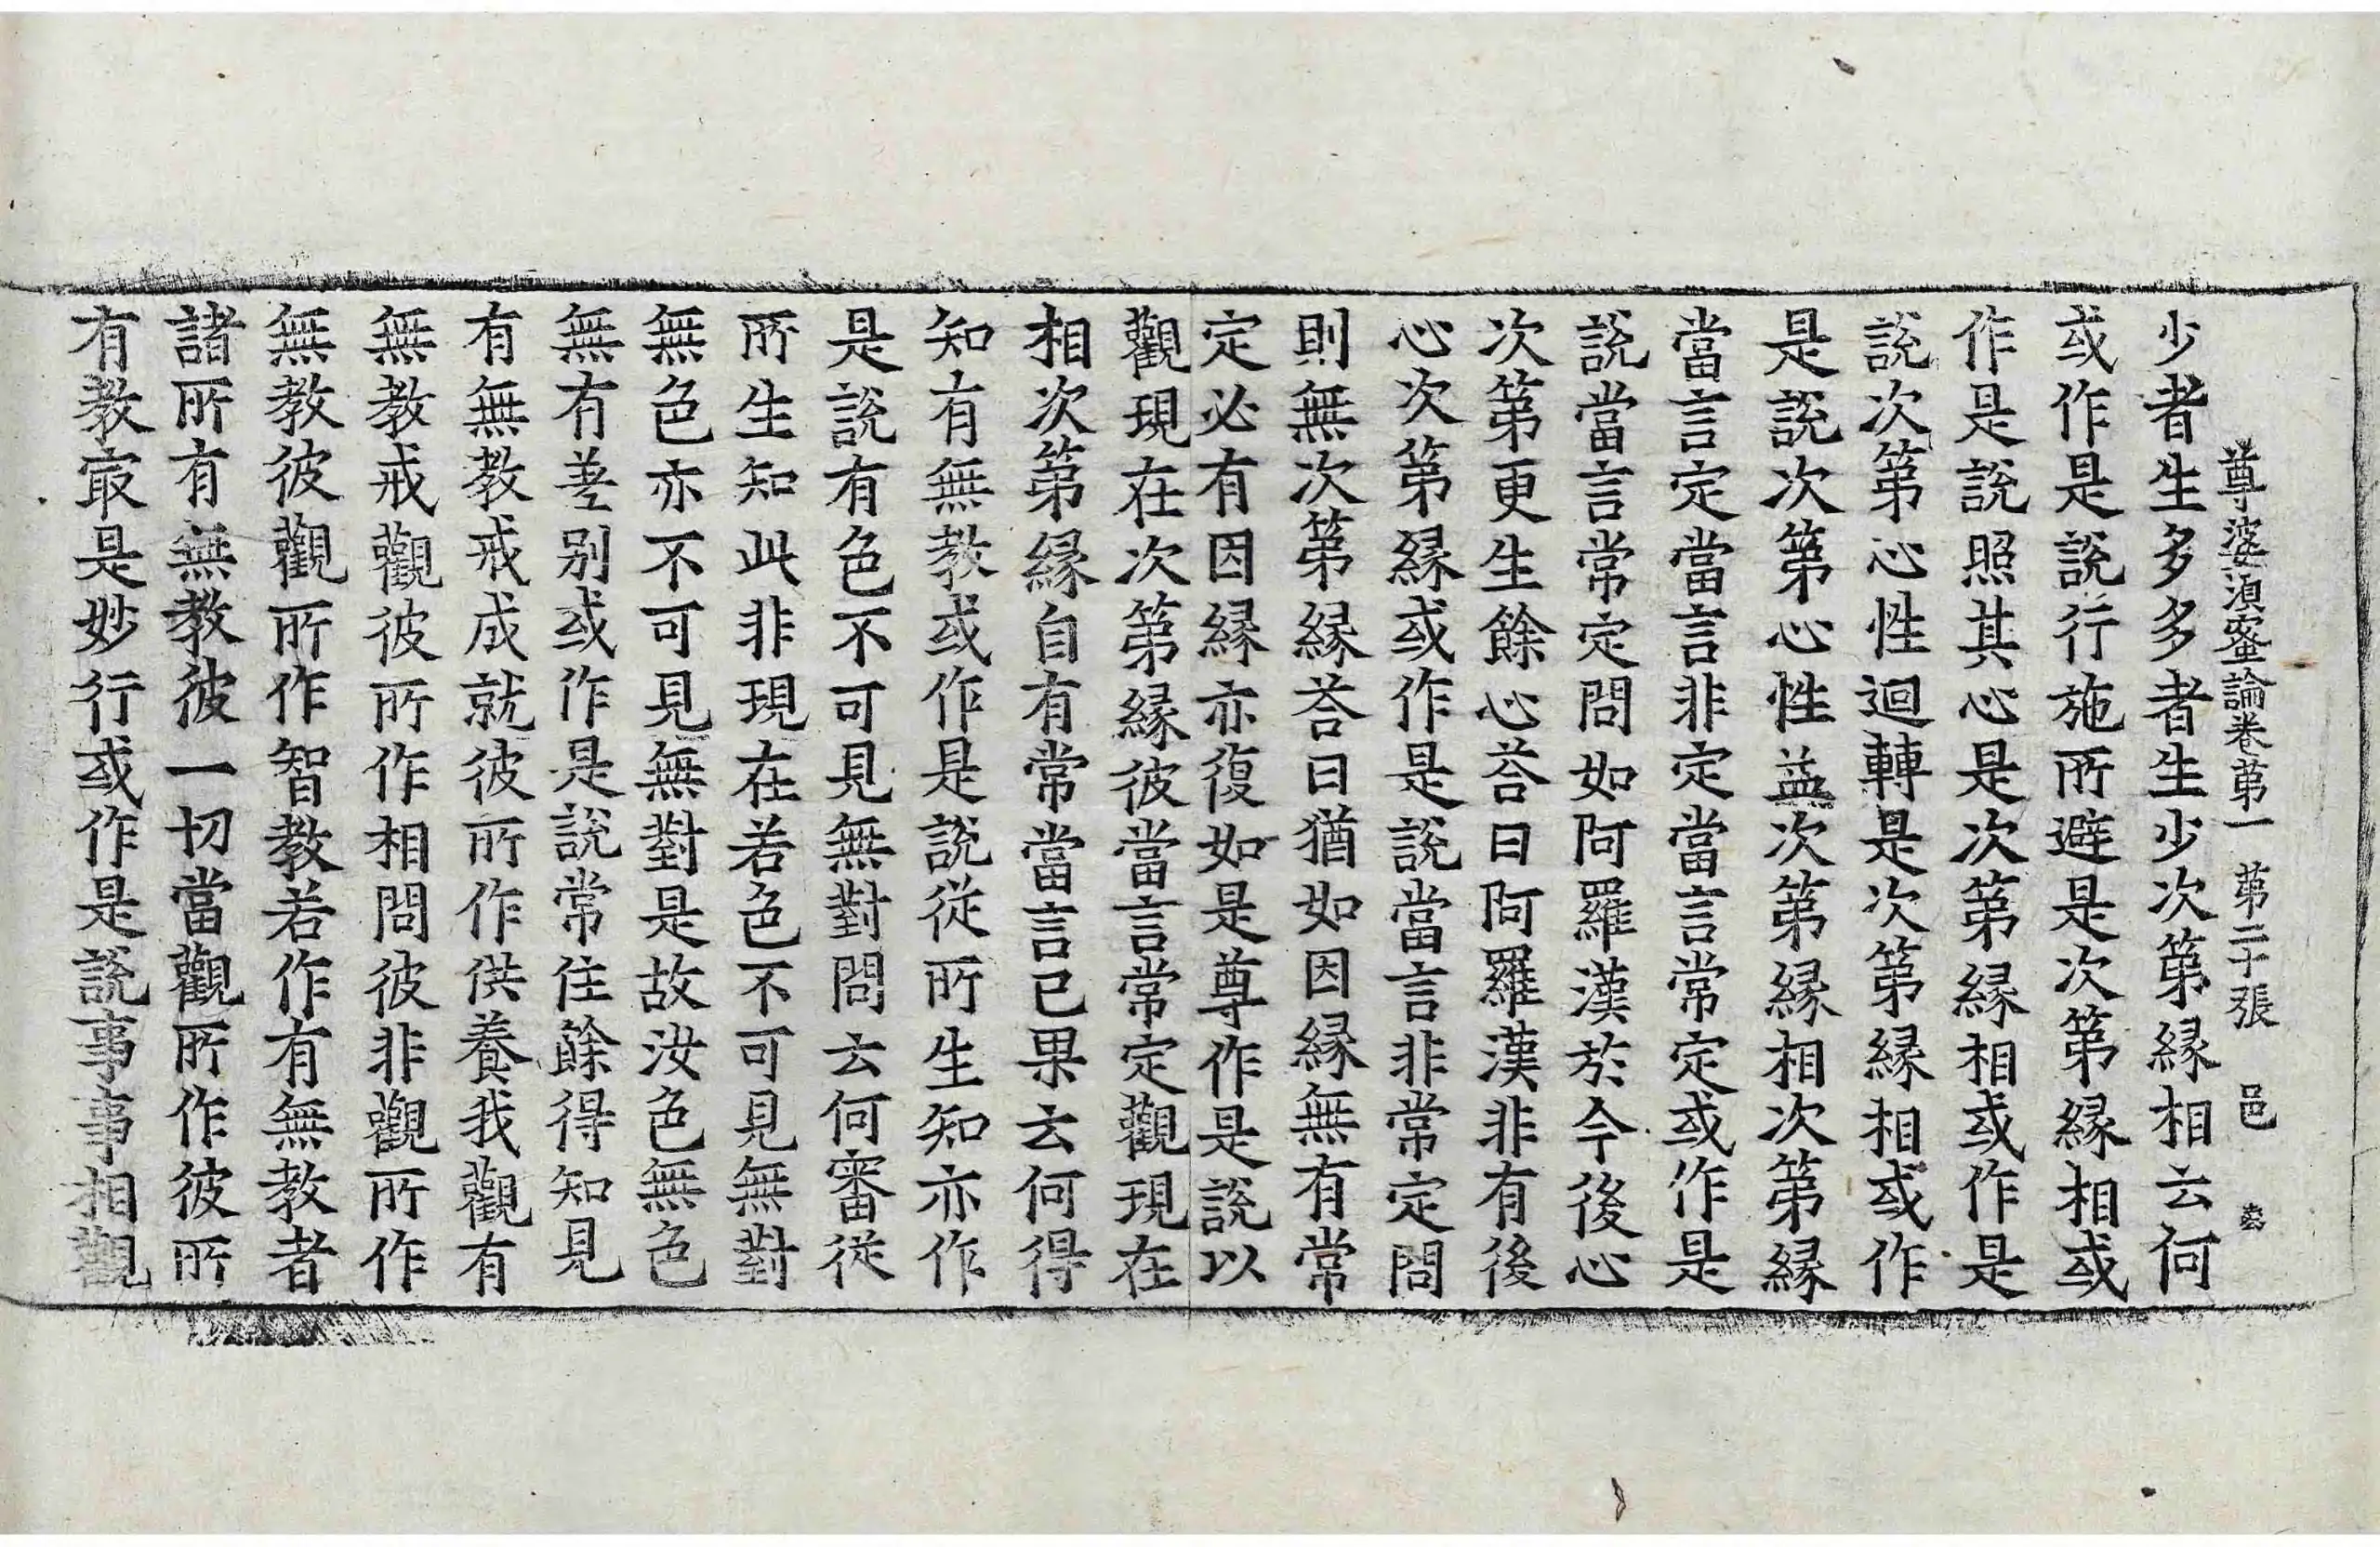 尊婆湏蜜論卷苐一 苐二十張 邑
少者生多多者生少次第縁相云何
或作是說行施所避是次第縁相或
作是說照其心是次第縁相或作是
說次第心性迴轉是次第縁相或作
是說次第心性益次第縁相次第縁
當言定當言非定當言常定或作是
說當言常定問如阿羅漢於今後心
次第更生餘心荅曰阿羅漢非有後
心次第縁或作是說當言非常定問
則無次第縁荅曰猶如因縁無有常
定必有因縁亦復如是尊作是說以
觀現在次第縁彼當言常定觀現在
相次第縁自有常當言已果云何得
知有無教或作是說從所生知亦作
是說有色不可見無對問云何審從
所生知此非現在若色不可見無對
無色亦不可見無對是故汝色無色
無有差别或作是說常住餘得知見
有無教戒成就彼所作供養我觀有
無教戒觀彼所作相問彼非觀所作
無教彼觀所作智教若作有無教者
諸所有無教彼一切當觀所作彼所
有教㝡是妙行或作是說事事相觀